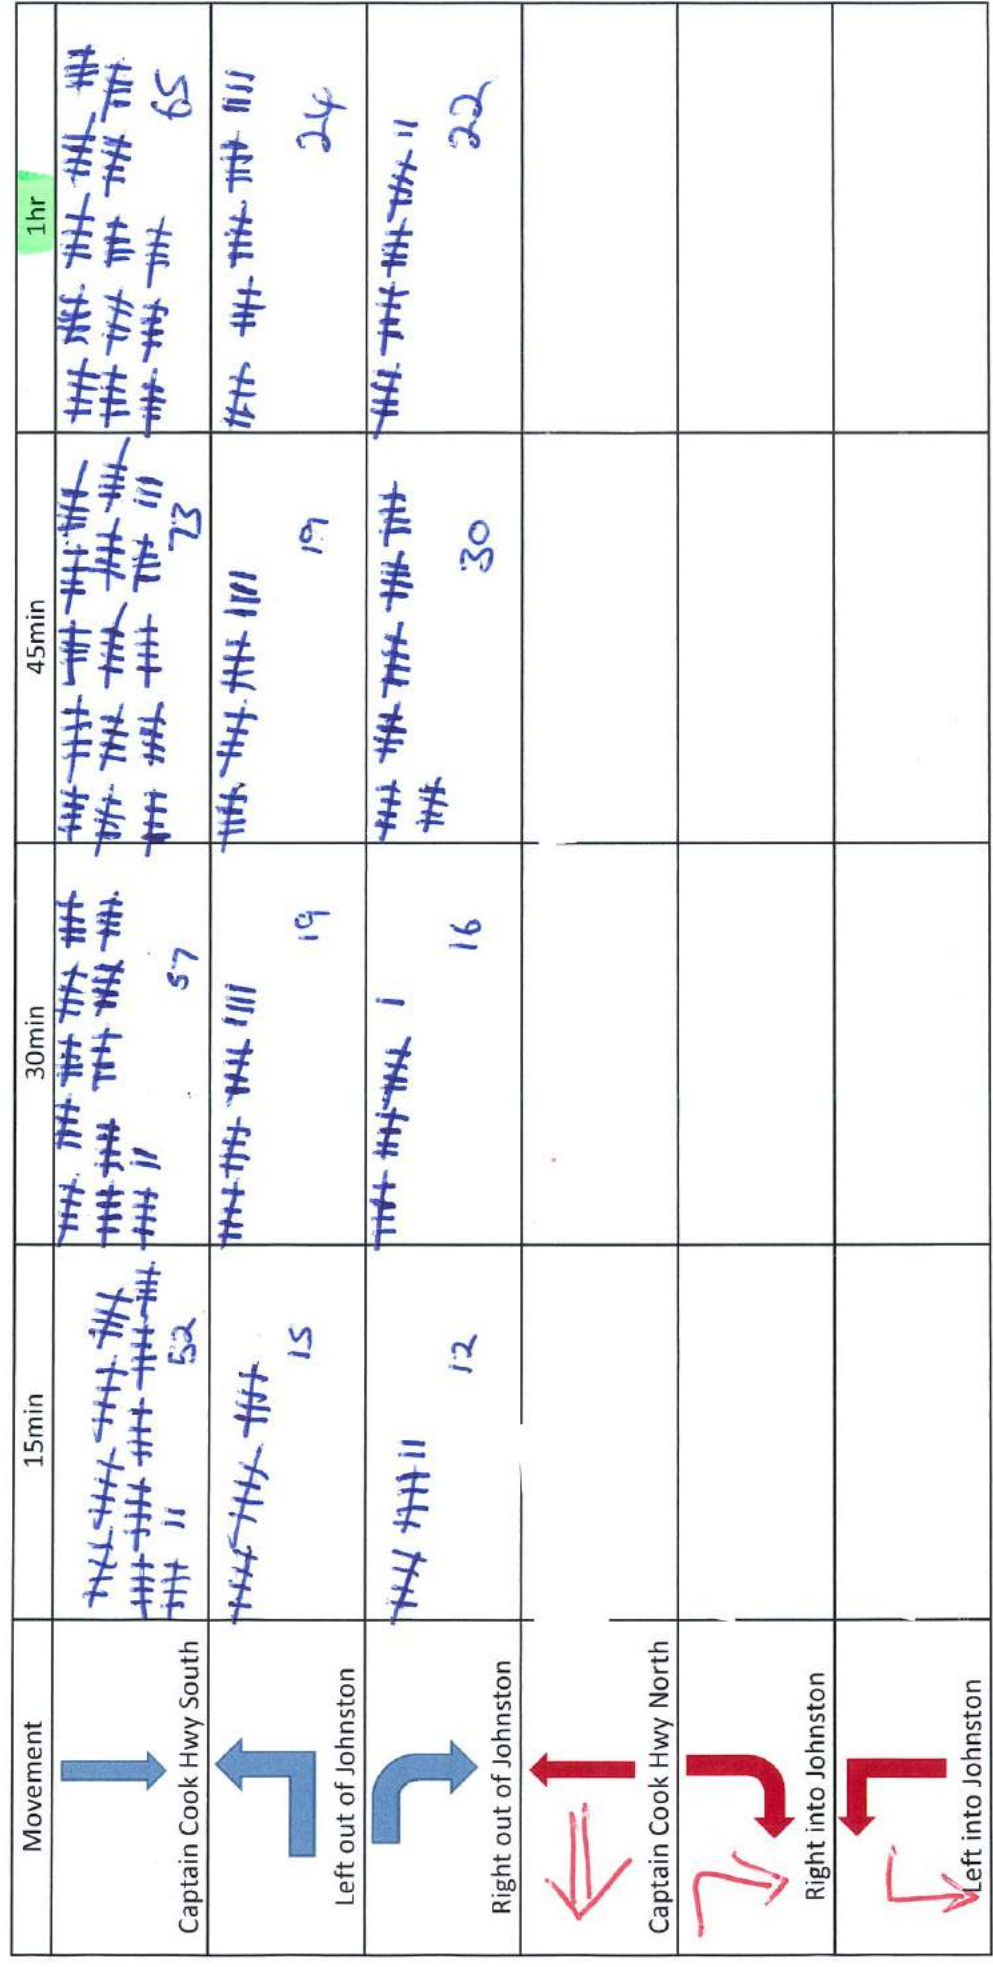 Movement 15min 30min 45min 1hr
Captain Cook Hwy South 52 57 73 65
Left out of Johnston 15 19 19 24
Right out of Johnston 12 16 30 22
Captain Cook Hwy North
Right into Johnston
Left into Johnston